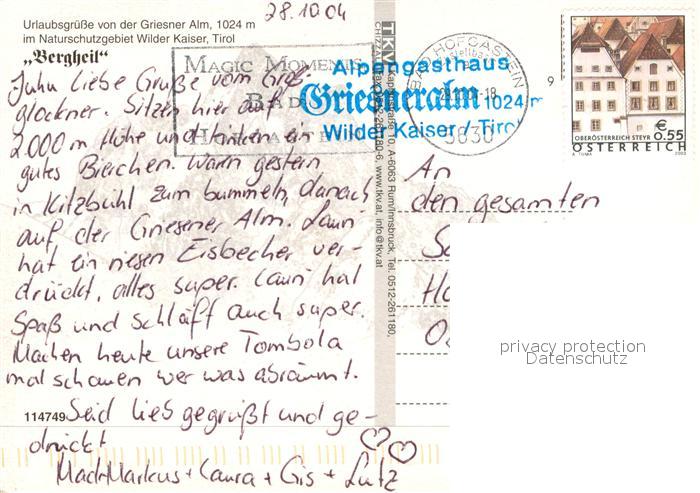 28.10.04
Urlaubsgrüße von der Griesner Alm, 1024 m
im Naturschutzgebiet Wilder Kaiser, Tirol
„Bergheil“
Juhu liebe Grüße vom Groß-
glockner. Sitzen hier auf
2000 m Höhe und trinken ein
gutes Bierchen. Waren gestern
in Kitzbühl zum bummeln, danach
auf der Griesener Alm. Lauri
hat ein riesen Eisbecher ver-
drückt, alles super. Lauri hat
Spaß und schläft auch super.
Machen heute unsere Tombola
mal schauen wer was abräumt.
114749 Seid lieb gegrüßt und ge-
drückt
Markus + Laura + Gis + Lutz
MAGIC MOMENTS
BAD
Alpengasthaus
Griesneralm 1024 m
Wilder Kaiser / Tirol
HOFGASTEIN
5630
TKV
Kapellenstraße 10, A-6063 Rum/Innsbruck, Tel. 0512-261180,
www.tkv.at, info@tkv.at
€ 0.55
OBERÖSTERREICH STEYR
ÖSTERREICH
A. TUMA 2003
An
den gesamten
privacy protection
Datenschutz